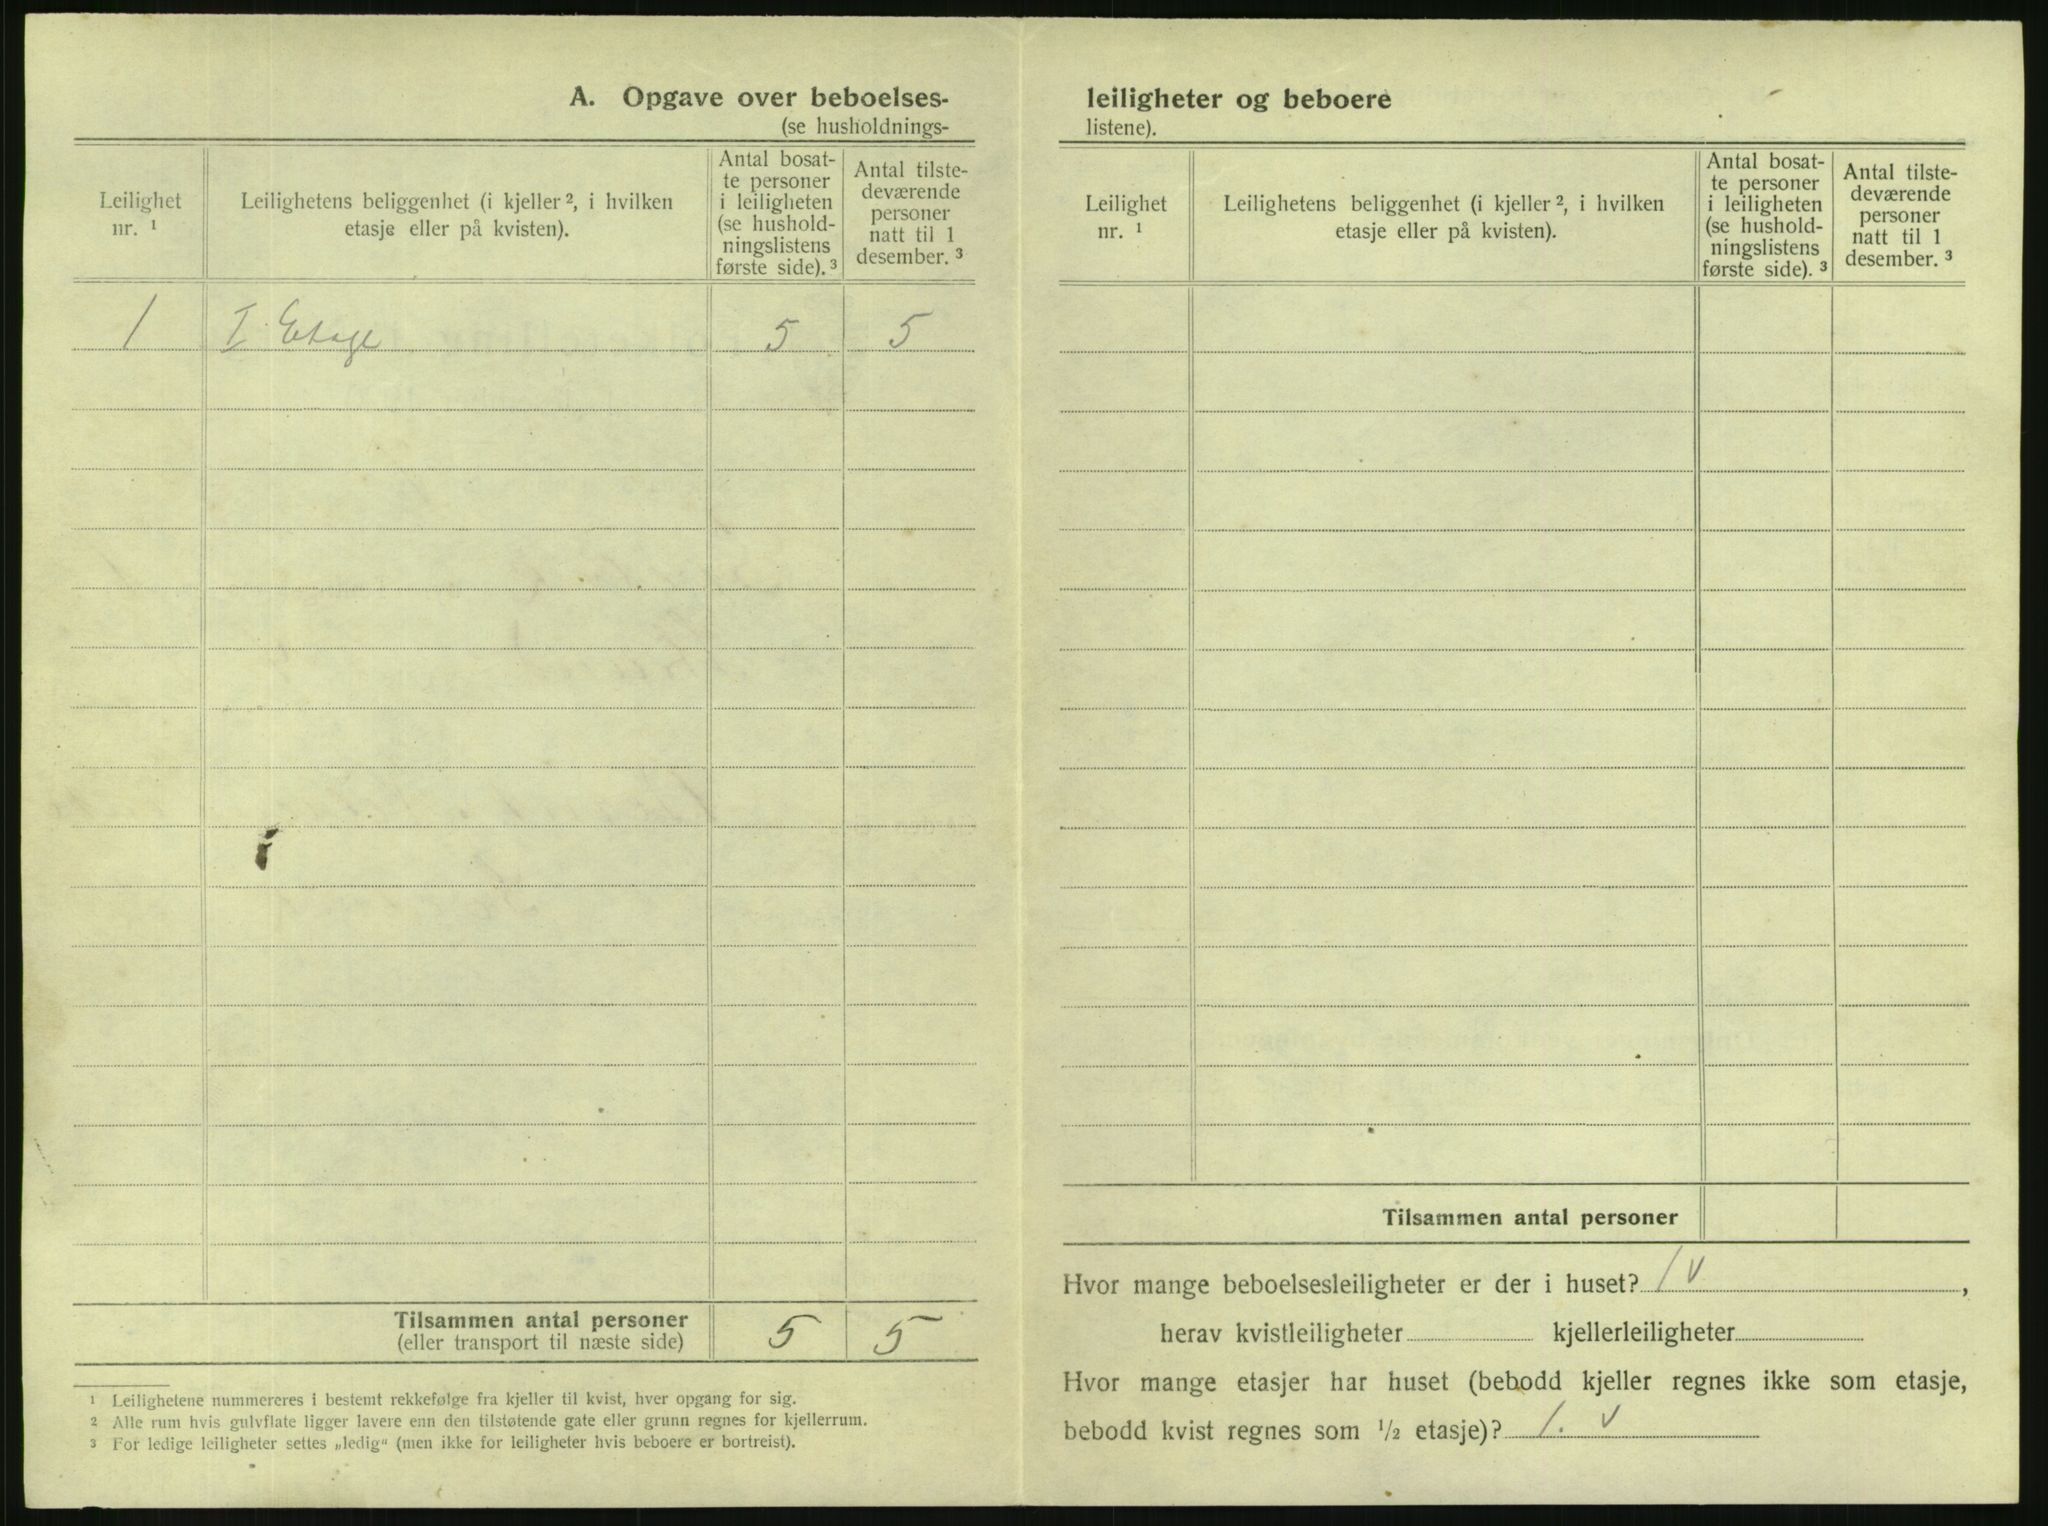 A. Opgave over beboelses-
(se husholdnings-
Leilighet nr. ¹
Leilighetens beliggenhet (i kjeller ², i hvilken
etasje eller på kvisten).
Antal bosat-
te personer
i leiligheten
(se hushold-
ningslistens
første side). ³
Antal tilste-
deværende
personer
natt til 1
desember. ³
1 I. Etage 5 5
Tilsammen antal personer 5 5
(eller transport til næste side)
¹ Leilighetene nummereres i bestemt rekkefølge fra kjeller til kvist, hver opgang for sig.
² Alle rum hvis gulvflate ligger lavere enn den tilstøtende gate eller grunn regnes for kjellerrum.
³ For ledige leiligheter settes „ledig“ (men ikke for leiligheter hvis beboere er bortreist).
leiligheter og beboere
listene).
Leilighet
nr. ¹
Leilighetens beliggenhet (i kjeller ², i hvilken
etasje eller på kvisten).
Antal bosat-
te personer
i leiligheten
(se hushold-
ningslistens
første side). ³
Antal tilste-
deværende
personer
natt til 1
desember. ³
Tilsammen antal personer
Hvor mange beboelsesleiligheter er der i huset? 1 v ,
herav kvistleiligheter kjellerleiligheter
Hvor mange etasjer har huset (bebodd kjeller regnes ikke som etasje,
bebodd kvist regnes som ½ etasje)? 1. v